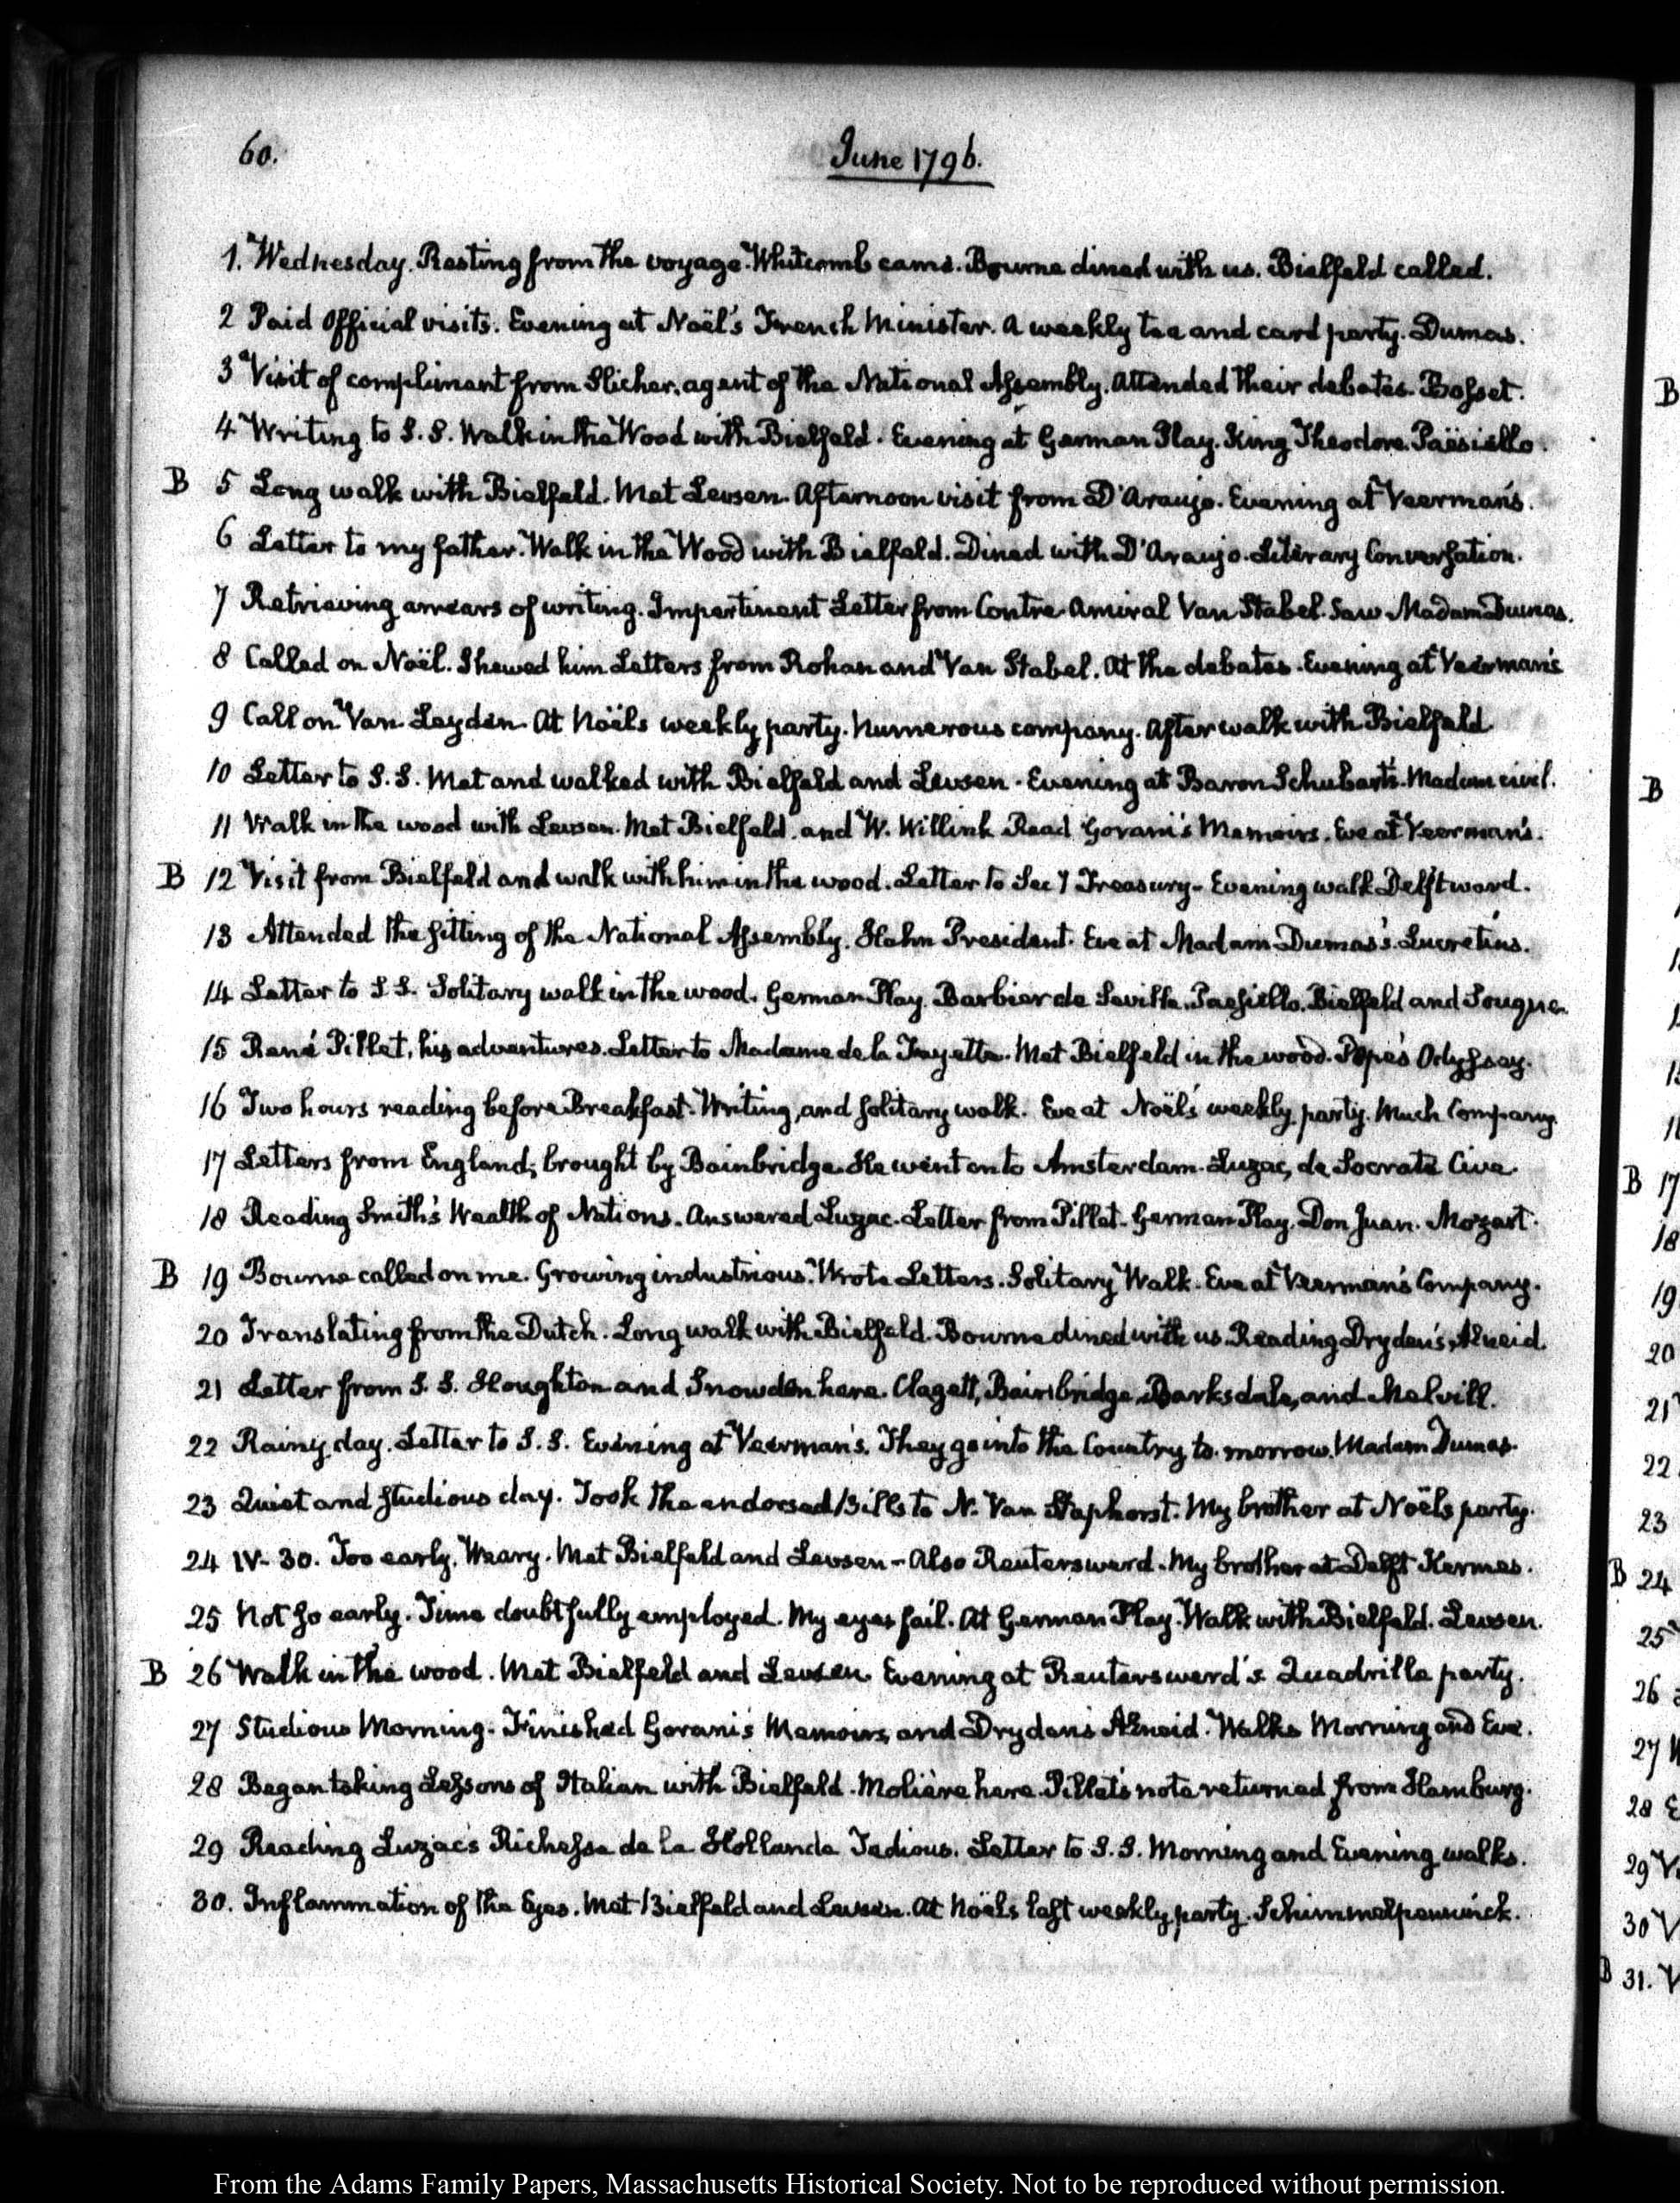 60.
June 1796.
1. Wednesday. Resting from the voyage. Whitcomb came. Bourne dined with us. Bielfeld called.
2 Paid Official visits. Evening at Noël's French Minister. A weekly tea and card party. Dumas.
3 Visit of compliment from Slicher, agent of the National Assembly. Attended their debates. Bosset.
4 Writing to S. S. Walk in the Wood with Bielfeld. Evening at German Play. King Theodore. Paësiello.
B 5 Long walk with Bielfeld. Met Levsen. Afternoon visit from D'Araujo. Evening at Veerman's.
6 Letter to my father. Walk in the Wood with Bielfeld. Dined with D'Araujo. Literary Conversation.
7 Retrieving arrears of writing. Impertinent Letter from Contre Amiral Van Stabel. Saw Madam Dumas.
8 Called on Noël. Shewed him Letters from Rohan and Van Stabel. At the debates. Evening at Veerman's
9 Call on Van Leyden. At Noëls weekly party. Numerous company. After walk with Bielfeld
10 Letter to S. S. Met and walked with Bielfeld and Levsen. Evening at Baron Schubart's. Madam civil.
11 Walk in the wood with Levsen. Met Bielfeld. and W. Willink Read Gorani's Memoirs. Eve at Veerman's.
B 12 Visit from Bielfeld and walk with him in the wood. Letter to Secy Treasury - Evening walk Delftward.
13 Attended the sitting of the National Assembly. Hahn President. Eve at Madam Dumas's. Lucretius.
14 Letter to S S. Solitary walk in the wood. German Play. Barbier de Seville. Paesiello. Bielfeld and
15 René Pillet, his adventures. Letter to Madame de la Fayette. Met Bielfeld in the wood. Pope's Odyssey.
16 Two hours reading before Breakfast. Writing, and solitary walk. Eve at Noëls weekly party. Much Company
17 Letters from England; brought by Bainbridge. He went on to Amsterdam. Luzac, de Socrate Cive.
18 Reading Smith's Wealth of Nations. Answered Luzac. Letter from Pillet. German Play. Don Juan. Mozart.
B 19 Bourne called on me. Growing industrious. Wrote Letters. Solitary Walk. Eve at Veerman's Company.
20 Translating from the Dutch. Long walk with Bielfeld. Bourne dined with us. Reading Dryden's Æneid.
21 Letter from S. S. Houghton and Snowden here. Clagett, Bainbridge, Barksdale, and Melvill.
22 Rainy day. Letter to S. S. Evening at Veerman's. They go into the Country to-morrow. Madam Dumas.
23 Quiet and studious day. Took the endorsed Bills to N. Van Staphorst. My brother at Noëls party.
24 IV-30. Too early. Weary. Met Bielfeld and Levsen - Also Reutersward. My brother at Delft Kermes.
25 Not so early. Time doubtfully employed. My eyes fail. At German Play. Walk with Bielfeld. Levsen.
B 26 Walk in the wood. Met Bielfeld and Levsen. Evening at Reutersward's Quadrille party.
27 Studious Morning. Finished Gorani's Memoirs, and Dryden's Æneid. Walks Morning and Eve.
28 Began taking Lessons of Italian with Bielfeld. Molière here. Pillet's note returned from Hamburg.
29 Reading Luzac's Richesse de la Hollande Tedious. Letter to S. S. Morning and Evening walks.
30. Inflammation of the Eyes. Met Bielfeld and Levsen. At Noëls last weekly party. Schimmelpenninck.
B
B
B 17
18
19
20
21
22
23
B 24
25
26
27
28
29
30
B 31.
From the Adams Family Papers, Massachusetts Historical Society. Not to be reproduced without permission.